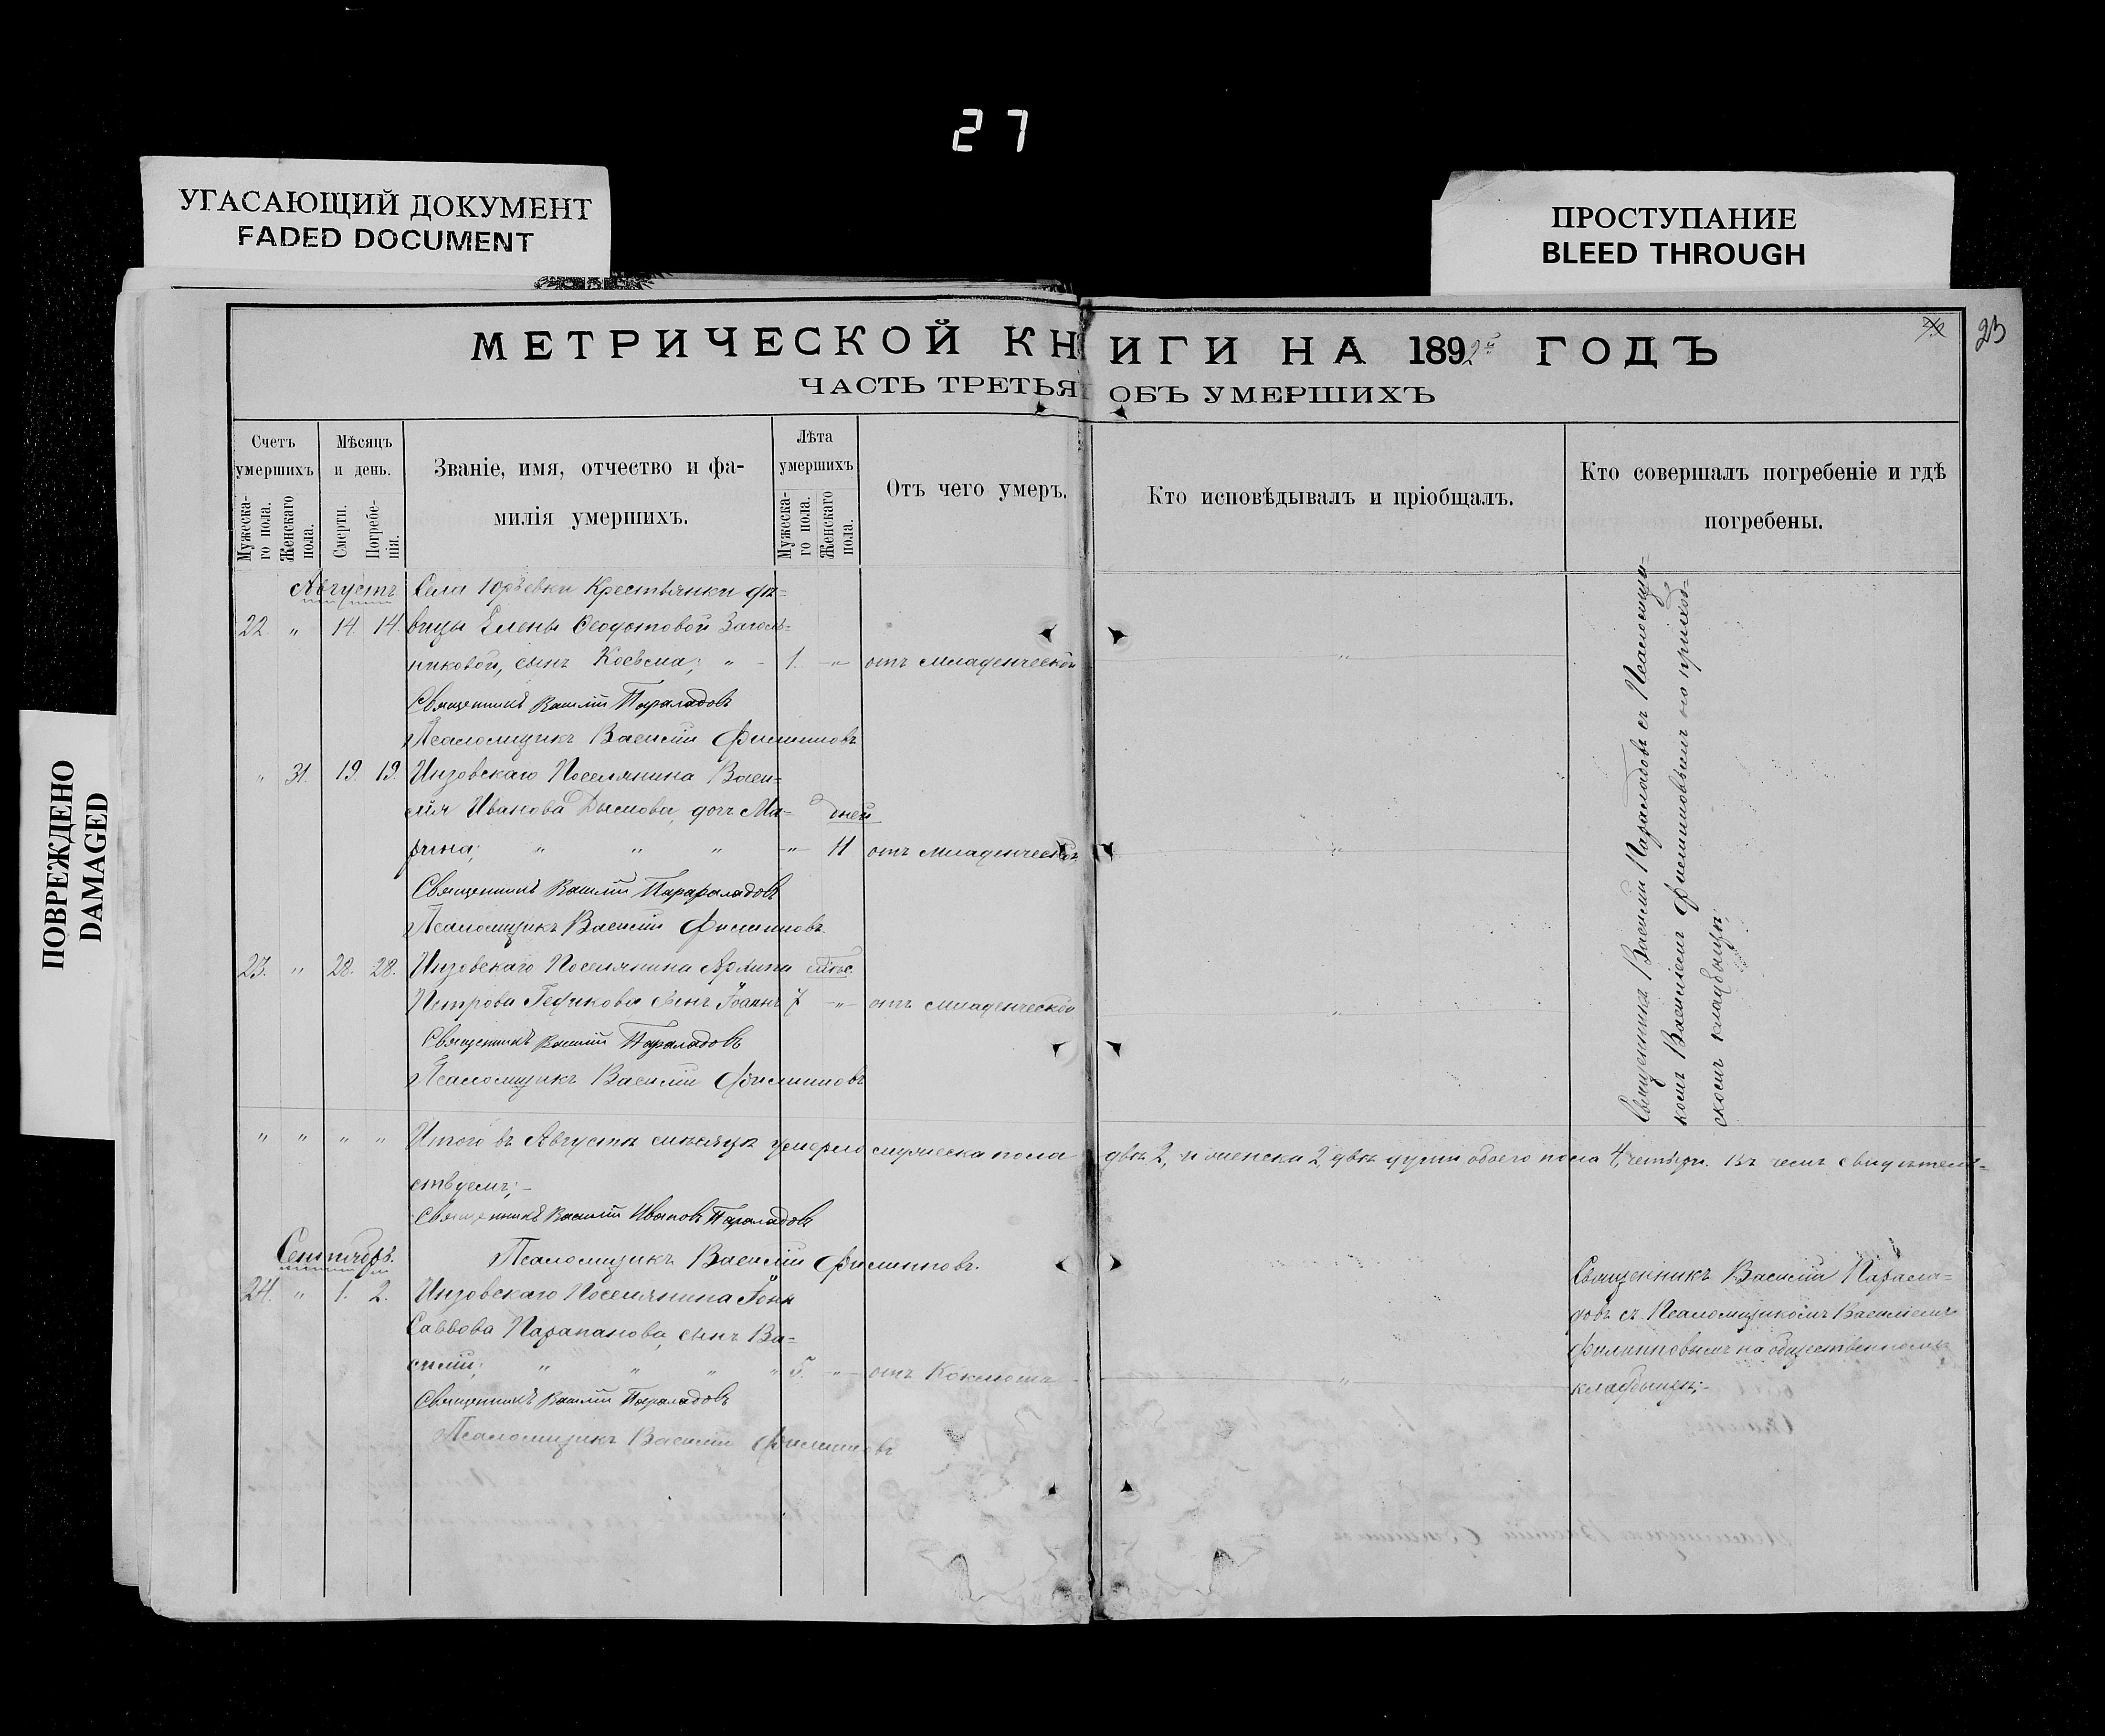 27
УГАСАЮЩИЙ ДОКУМЕНТ
FADED DOCUMENT
ПРОСТУПАНИЕ
BLEED THROUGH
ПОВРЕЖДЕНО
DAMAGED
МЕТРИЧЕСКОЙ КНИГИ НА 1892й ГОДЪ
23
ЧАСТЬ ТРЕТЬЯ ОБЪ УМЕРШИХЪ
Счетъ умершихъ.
Мужеска-го пола.
Женскаго пола.
Мѣсяцъ и день.
Смерти.
Погребе-нія.
Званіе, имя, отчество и фа-
милія умершихъ.
Лѣта умершихъ
Мужеска-го пола.
Женскаго пола.
Отъ чего умеръ.
Кто исповѣдывалъ и пріобщалъ.
Кто совершалъ погребеніе и гдѣ
погребены.
Августъ Села Юрьевки Крестьянки дѣ=
22 " 14. 14. вицы Елены Ѳеодотовой
никовой, сынъ Косьма; " 1. " отъ младенческой "
Священникъ Василій Параладовъ
Псаломщикъ Василій Филипповъ
" 31. 19. 19. Инзовскаго Поселянина Васи=
лія Иванова Дымова, дочь Ма= дней
рина; " " " " 11 отъ младенческой "
Священникъ Василій Параладовъ
Псаломщикъ Василій Филипповъ.
23. " 28. 28. Инзовскаго Поселянина
Петрова сынъ Іоаннъ 7 " отъ младенческой "
Священникъ Василій Параладовъ
Псаломщикъ Василій Филипповъ
Священникъ Василій Параладовъ съ Псаломщи-
комъ Василіемъ Филипповымъ на приход-
скомъ кладбищѣ;
" " " " Итого въ Августѣ мѣсяцѣ умерло мужеска пола двѣ 2, и женска 2, двѣ души обоего пола 4, четыри. Въ чемъ свидѣтель=
ствуемъ;-
Священникъ Василій Ивановъ Параладовъ
Псаломщикъ Василій Филипповъ.
Сентябрь.
24. " 1. 2. Инзовскаго Поселянина
Саввова Парапанова, сынъ Ва=
силій; " " " " 5. " отъ Коклюша "
Священникъ Василій Параладовъ
Псаломщикъ Василій Филипповъ
Священникъ Василій Парала=
довъ съ Псаломщикомъ Василіемъ
Филипповымъ на общественномъ
кладбищѣ;-